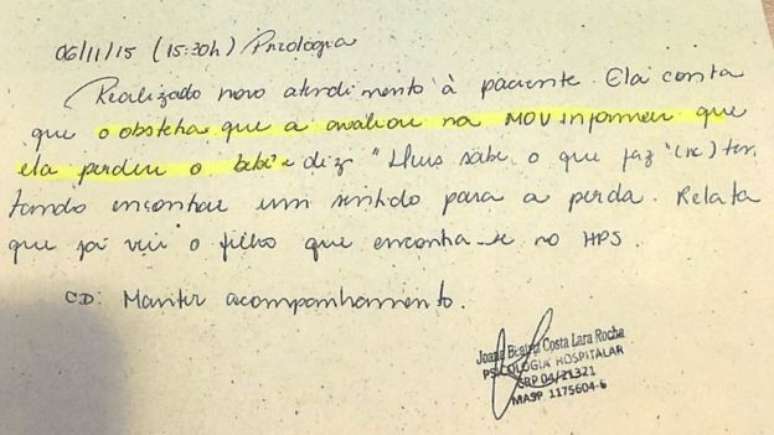 06/11/15 (15:30h) Psicologia
Realizado novo atendimento à paciente. Ela conta
que o obstetra que a avaliou na MOV informou que
ela perdeu o bebê e diz "Deus sabe o que faz" (sic) ten
tando encontrar um sentido para a perda. Relata
que já viu o filho que encontra-se no HPS.
CD: Manter acompanhamento.
Joana Costa Lara Rocha
PSICOLOGIA HOSPITALAR
CRP 04/21321
MASP 1175604-6